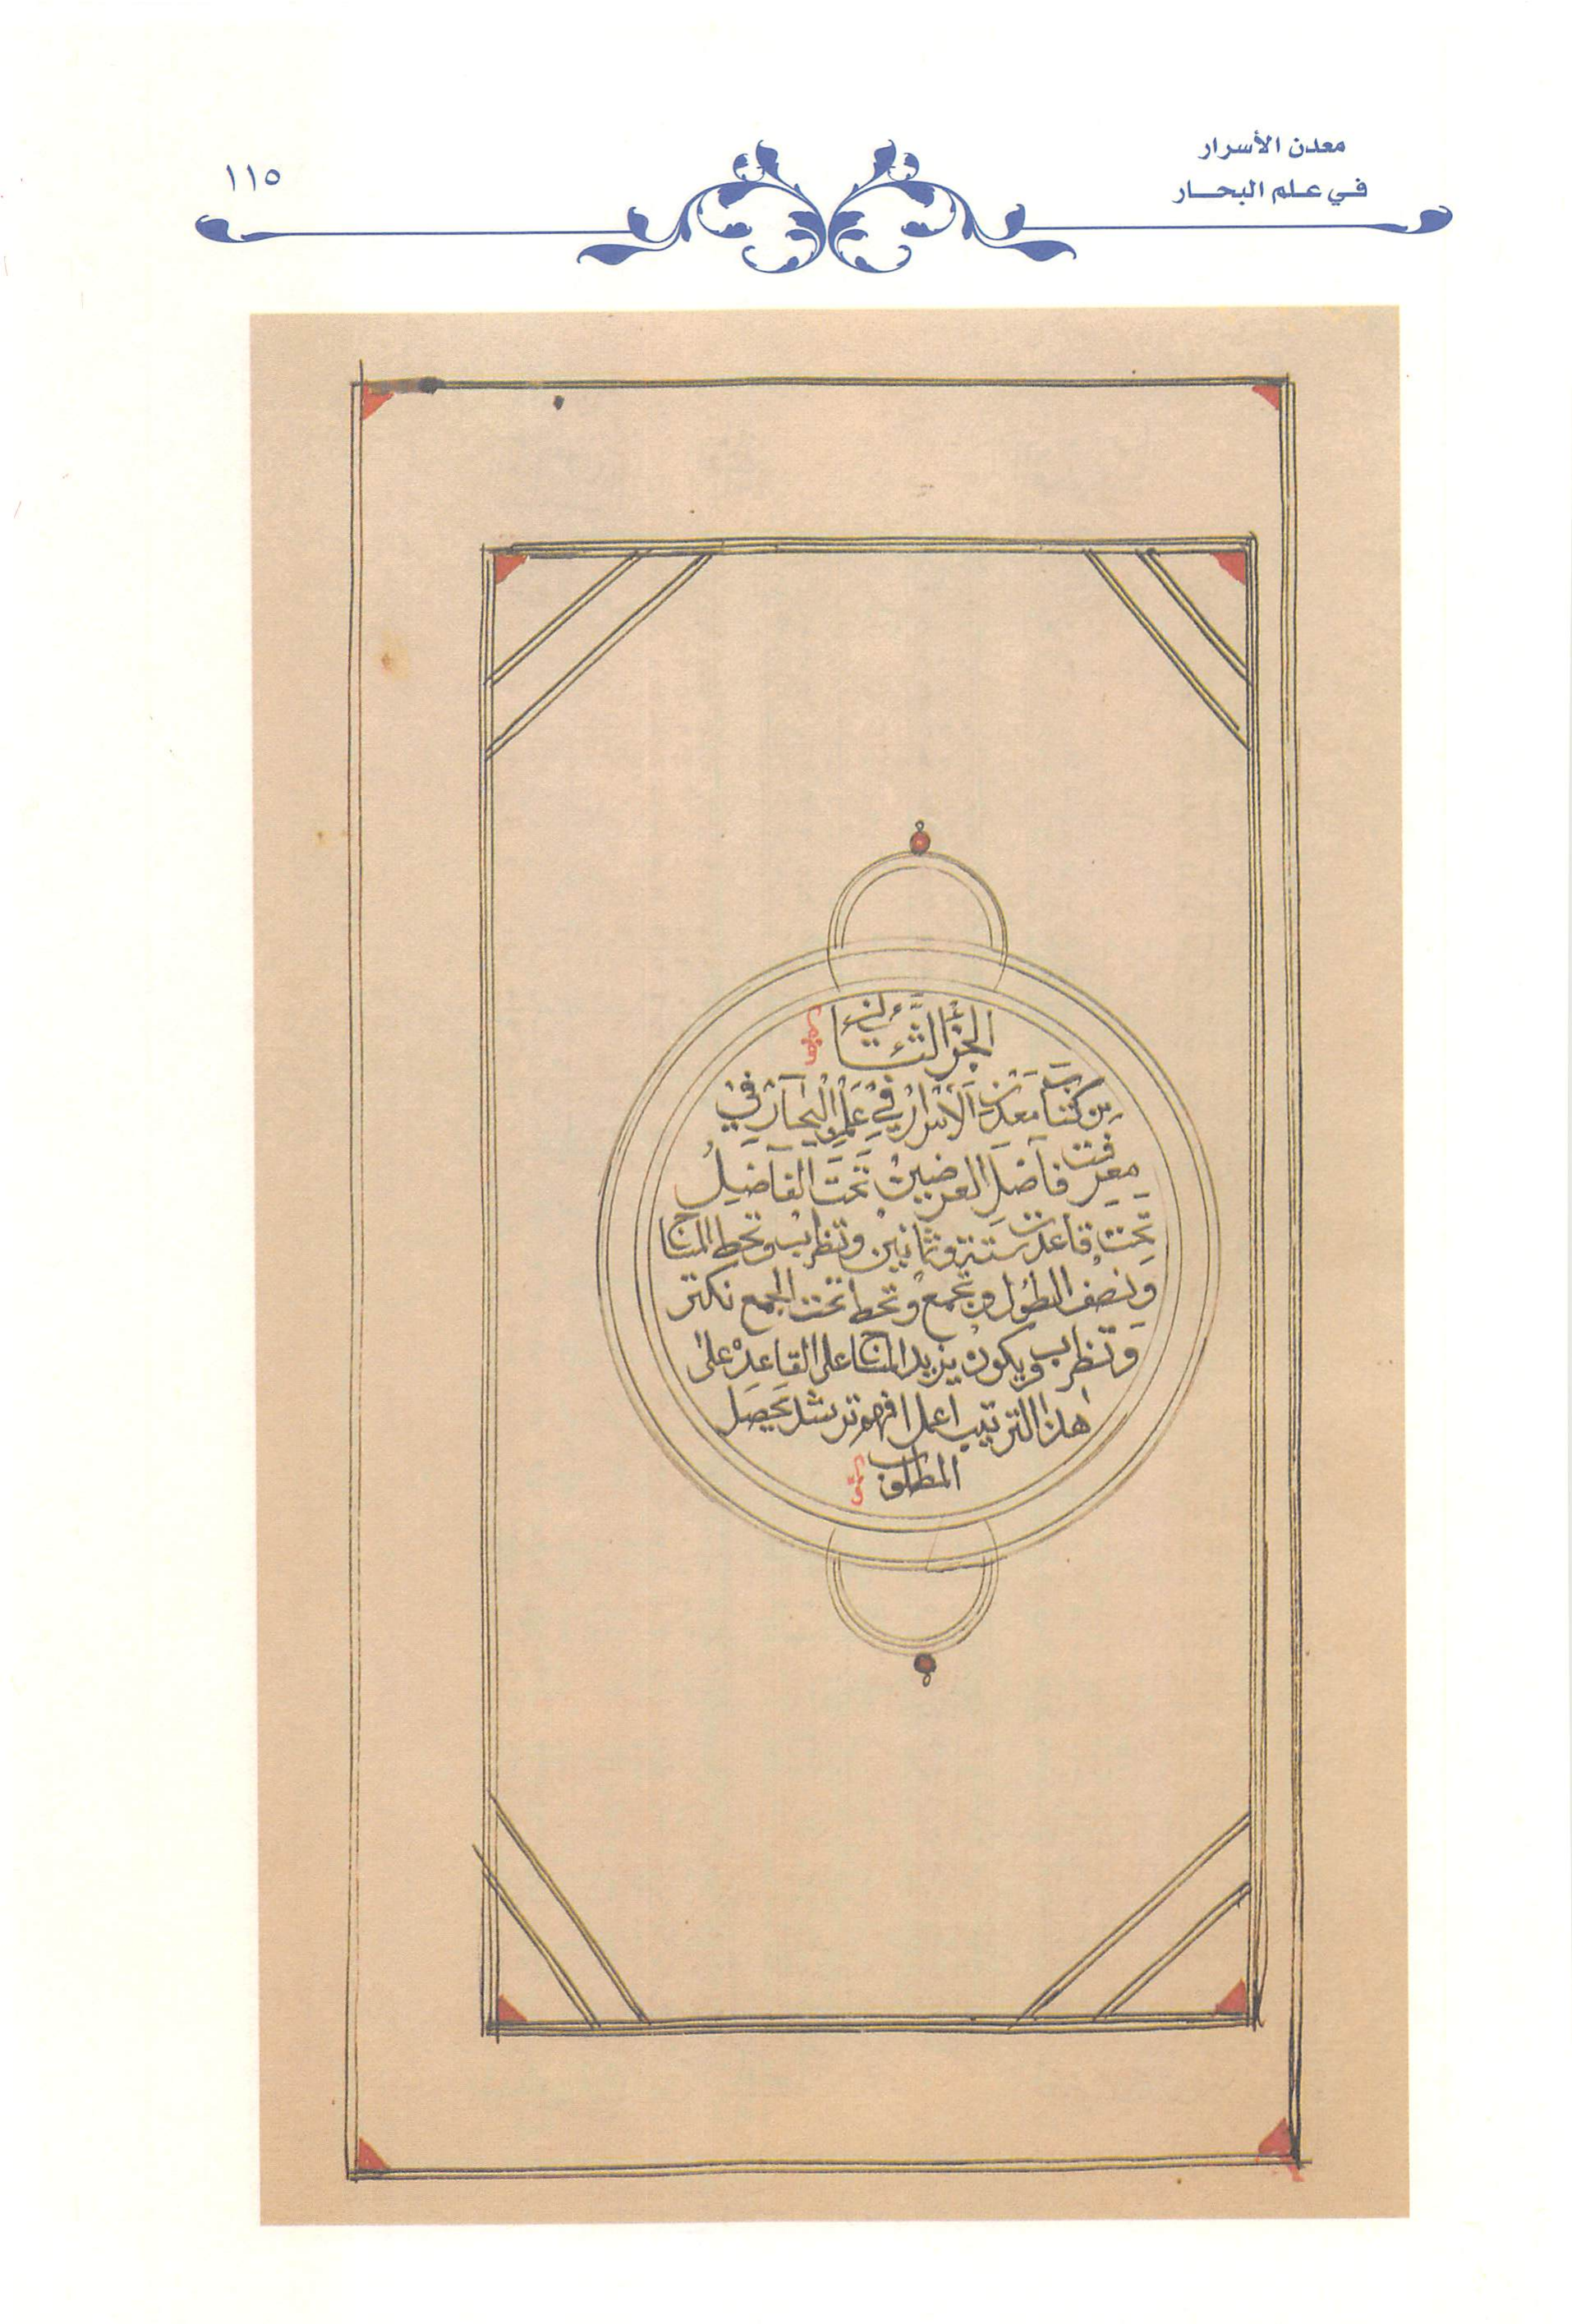 معدن الأسرار
في علم البحـــار
١١٥
الجزْ الثَّاني
مِن كتاب معدن الاسرار في علم البحار في
معرفت فاضل العرضين تحت الفاضل
تحت قاعدت ستة وثمانين وتظرب وتحط المنتاج
ونصف الطول وتجمع وتحط تحت الجمع نكتر
وتظرب ويكون يزيد المنتاج على القاعده على
هذا الترتيب اعمل افهم ترشد يحصل
المطلوب